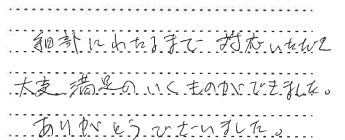 細計にわたるまで 対応いただき
大変 満足のいくものができました。
ありがとうございました。